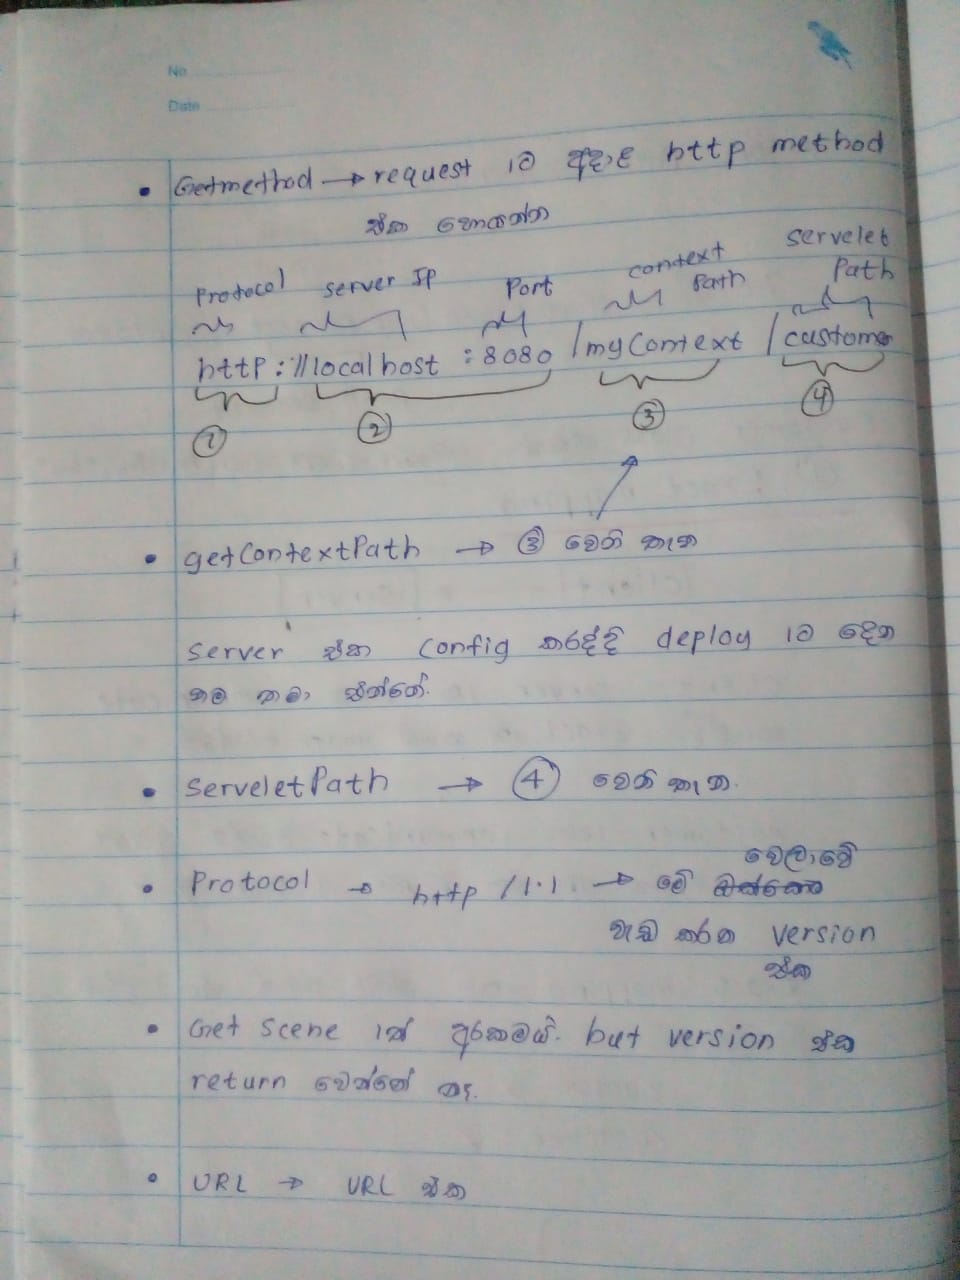 No
Date
• Getmethod → request 1ට අදාළ http method
එක හොයන්න
servelet
Protocol server IP Port context Path Path
http://localhost :8080 /myContext /customer
① ② ③ ④
• getContextPath → ③ වෙනි තැන
Server එක config කරද්දි deploy 1ට දෙන
නම තමා එන්නේ.
• ServeletPath → ④ වෙනි තැන.
වෙලාවේ
• Protocol → http /1.1 → මේ
වැඩ කරන version
එක
• Get Scene 1ත් අරකමයි. but version එක
return වෙන්නේ නෑ.
• URL → URL එක